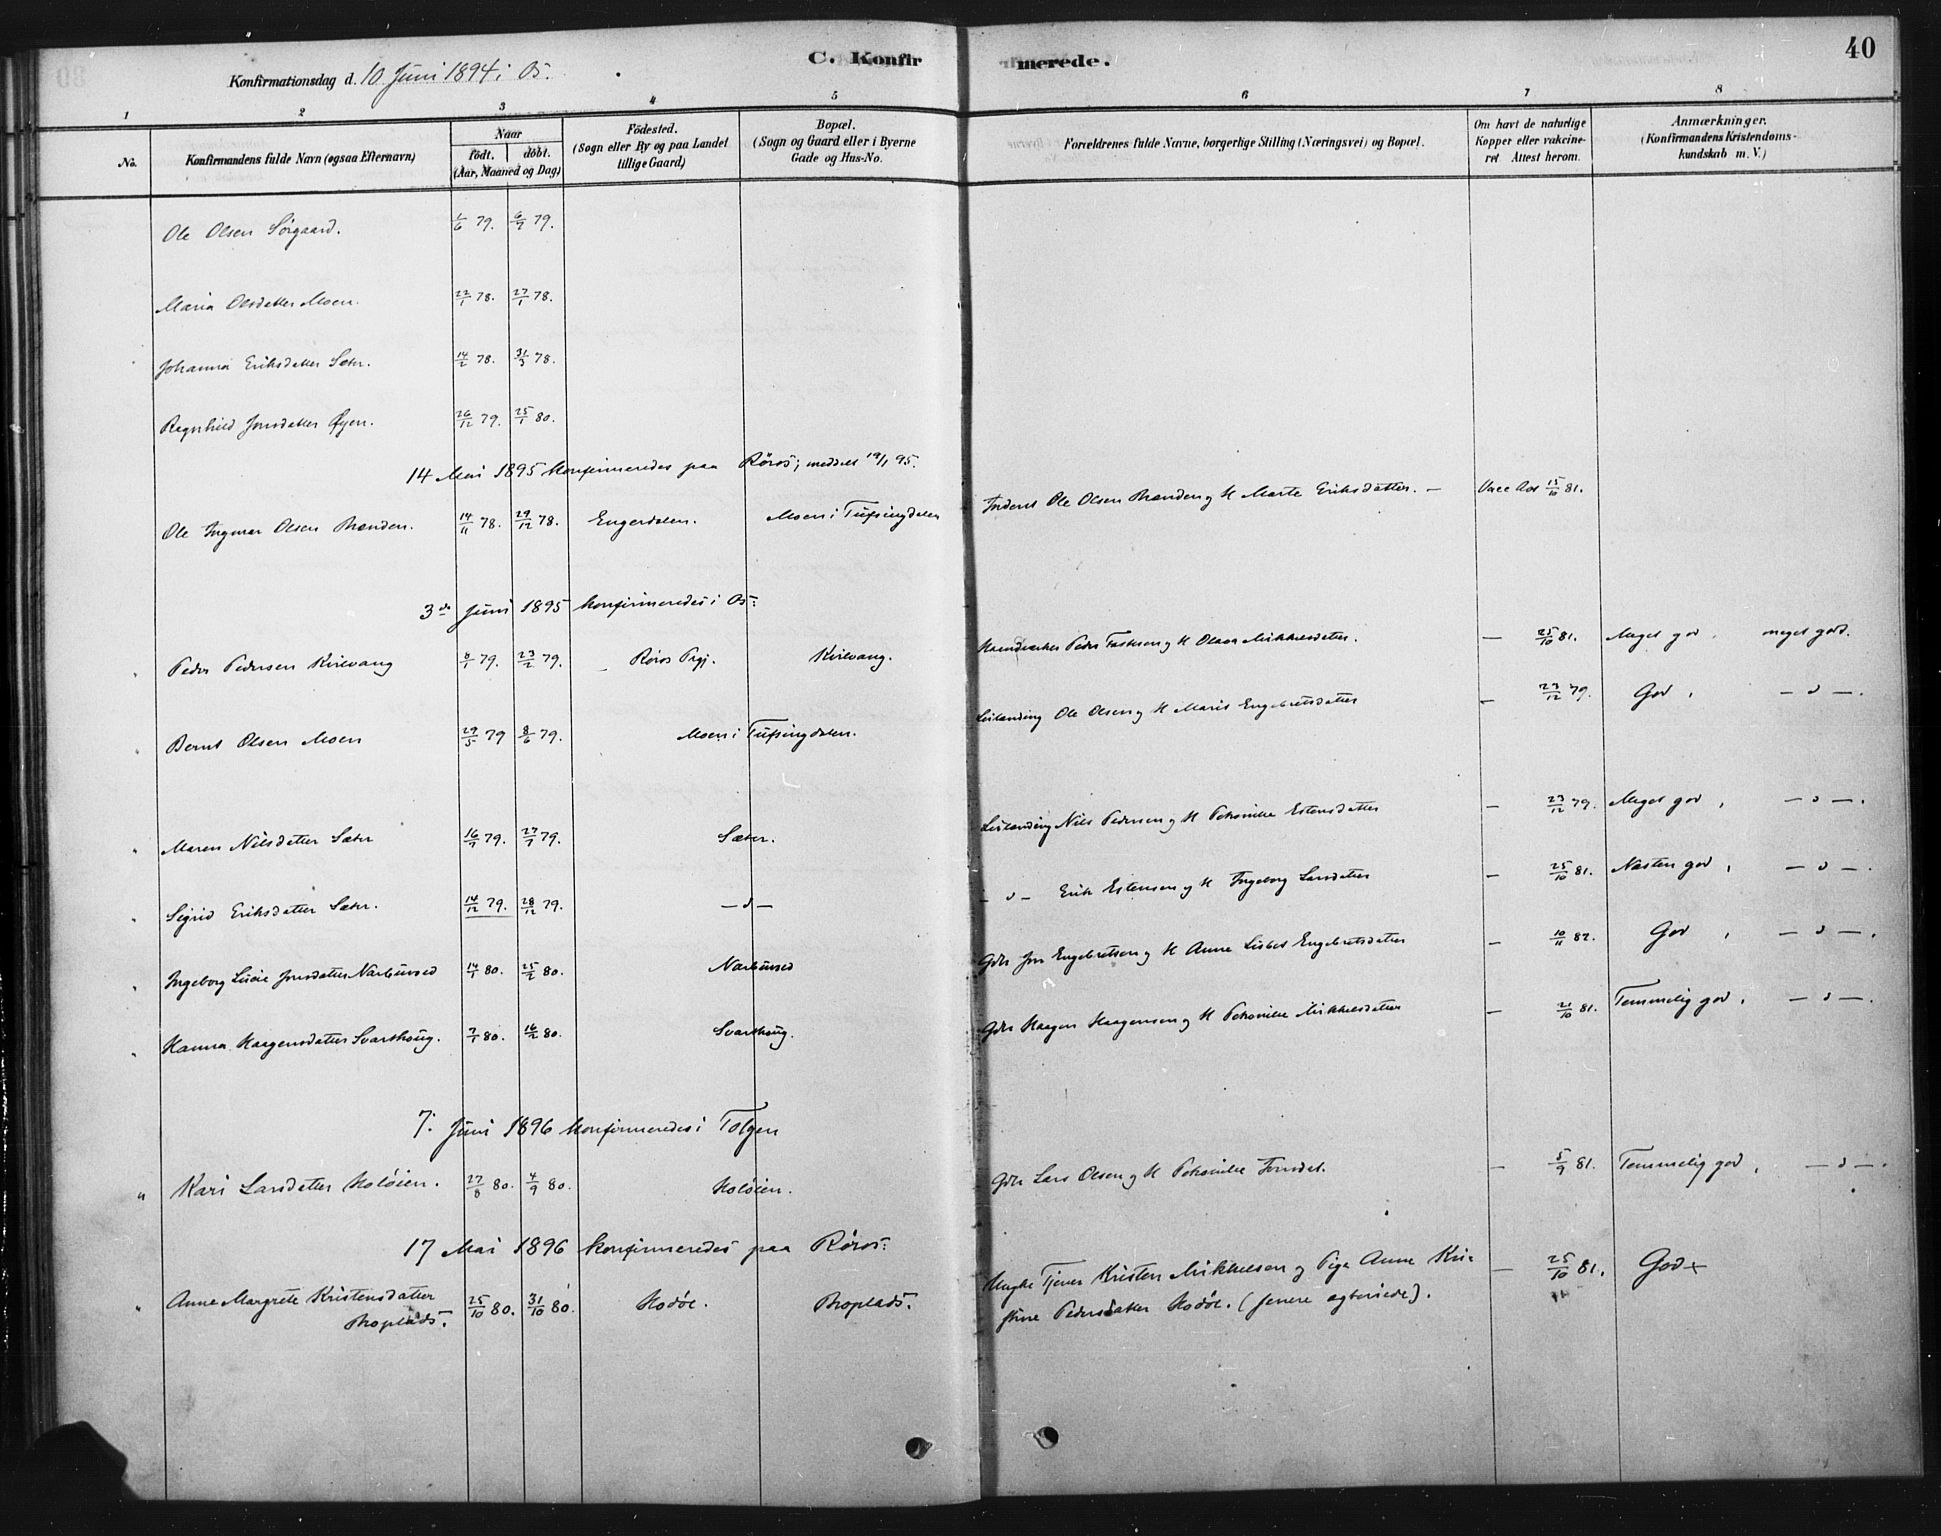 C. Konfirmerede.
40
Konfirmationsdag d. 10 Juni 1894 i Os.
1 2 3 4 5 6 7 8
No.
Konfirmandens fulde Navn (ogsaa Efternavn)
Naar
født. døbt.
(Aar, Maaned og Dag)
Fødested.
(Sogn eller By og paa Landet
tillige Gaard)
Bopæl.
(Sogn og Gaard eller i Byerne
Gade og Hus-No.
Forældrenes fulde Navne, borgerlige Stilling (Næringsvei) og Bopæl.
Om havt de naturlige
Kopper eller vakcine-
ret Attest herom.
Anmærkninger.
(Konfirmandens Kristendoms-
kundskab m. V.)
Ole Olsen Sørgaard. 1/6 79. 6/9 79.
Maria Olsdatter Moen. 22/1 78. 27/1 78.
Johanna Eriksdatter Sæter. 14/2 78. 31/3 78.
Ragnhild Jonsdatter Øyen. 26/12 79. 25/1 80.
14 Mai 1895 konfirmeredes paa Røros; meddelt 19/1 95.
Ole Ingmar Olsen Brænden. 14/11 78. 29/12 78. Engerdalen. Moen i Tufsingdalen Inderst Ole Olsen Brænden og H Marte Eriksdatter. — Vacc Att 15/10 81.
3de Juni 1895 konfirmeredes i Os:
" Peder Pedersen Kirkvang 8/1 79. 23/2 79. Røros Prgj. Kirkvang. Haandverker Peder og H Olava Mikkelsdatter. — 25/10 81. Meget god, meget god.
" Bernt Olsen Moen 29/5 79 8/6 79. Moen i Tufsingdalen. Leilænding Ole Olsen og H Marit Engebretsdatter — 23/12 79. God, — " —.
" Maren Nilsdatter Sæter 16/7 79. 27/7 79. Sæter. Leilænding Nils Pedersen og H Petronille Estensdatter — 23/12 79. Meget god, — " —.
" Sigrid Eriksdatter Sæter. 14/12 79. 28/12 79. — " — — " — Erik Estensen og H Ingeborg Larsdatter — 25/10 81. Næsten god, — " —.
" Ingeborg Lucie Jonsdatter Narbuvoed 14/1 80. 25/2 80. Narbuvoed Gdr Jon Engebretsen og H Anne Lisbet Engebretsdatter — 10/11 82. God, — " —.
" Hanna Haagensdatter Svarthoug. 7/1 80. 16/2 80. Svarthoug. Gdr Haagen Haagensen og H Petronille Mikkelsdatter — 21/10 81. Temmelig god, — " —.
7. Juni 1896 konfirmeredes i Tolgen
" Kari Larsdatter Holøien. 27/8 80. 4/9 80. Holøien. Gdr Lars Olsen og H Petronille — 5/9 81. Temmelig god, — " —.
17 Mai 1896 konfirmeredes paa Røros:
" Anne Margrete Kristensdatter
Moplads. 25/10 80. 31/10 80. Hodøl. Moplads. Ungkr Tjener Kristen Mikkelsen og Pige Anne Kri-
stine Pedersdatter Hodøl. (senere egteviede). — 25/10 81. God